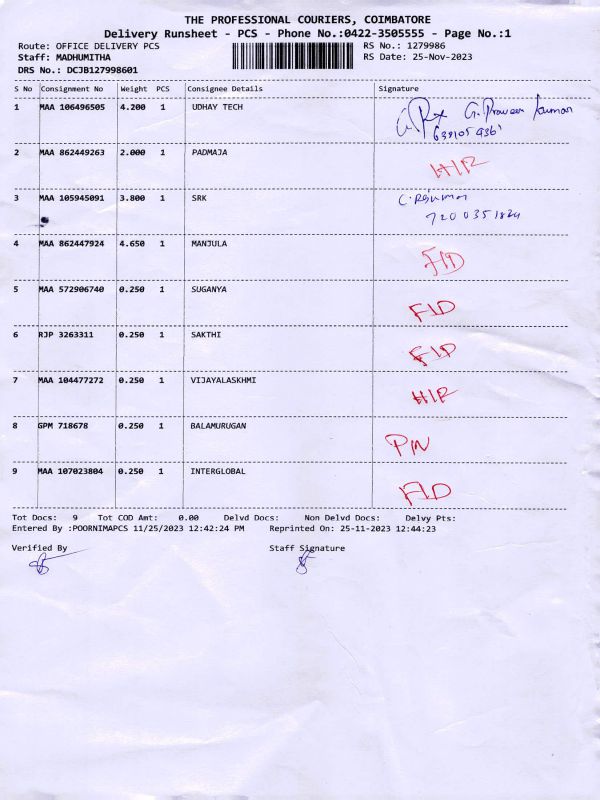 THE PROFESSIONAL COURIERS, COIMBATORE
Delivery Runsheet - PCS - Phone No.:0422-3505555 - Page No.:1
Route: OFFICE DELIVERY PCS RS No.: 1279986
Staff: MADHUMITHA RS Date: 25-Nov-2023
DRS No.: DCJB127998601
S No Consignment No Weight PCS Consignee Details Signature
1 MAA 106496505 4.200 1 UDHAY TECH G. Praveen kumar
2 MAA 862449263 2.000 1 PADMAJA HIR
3 MAA 105945091 3.800 1 SRK
7200351824
4 MAA 862447924 4.650 1 MANJULA FID
5 MAA 572906740 0.250 1 SUGANYA FID
6 RJP 3263311 0.250 1 SAKTHI FID
7 MAA 104477272 0.250 1 VIJAYALASKHMI HIR
8 GPM 718678 0.250 1 BALAMURUGAN PN
9 MAA 107023804 0.250 1 INTERGLOBAL FID
Tot Docs: 9 Tot COD Amt: 0.00 Delvd Docs: Non Delvd Docs: Delvy Pts:
Entered By :POORNIMAPCS 11/25/2023 12:42:24 PM Reprinted On: 25-11-2023 12:44:23
Verified By Staff Signature